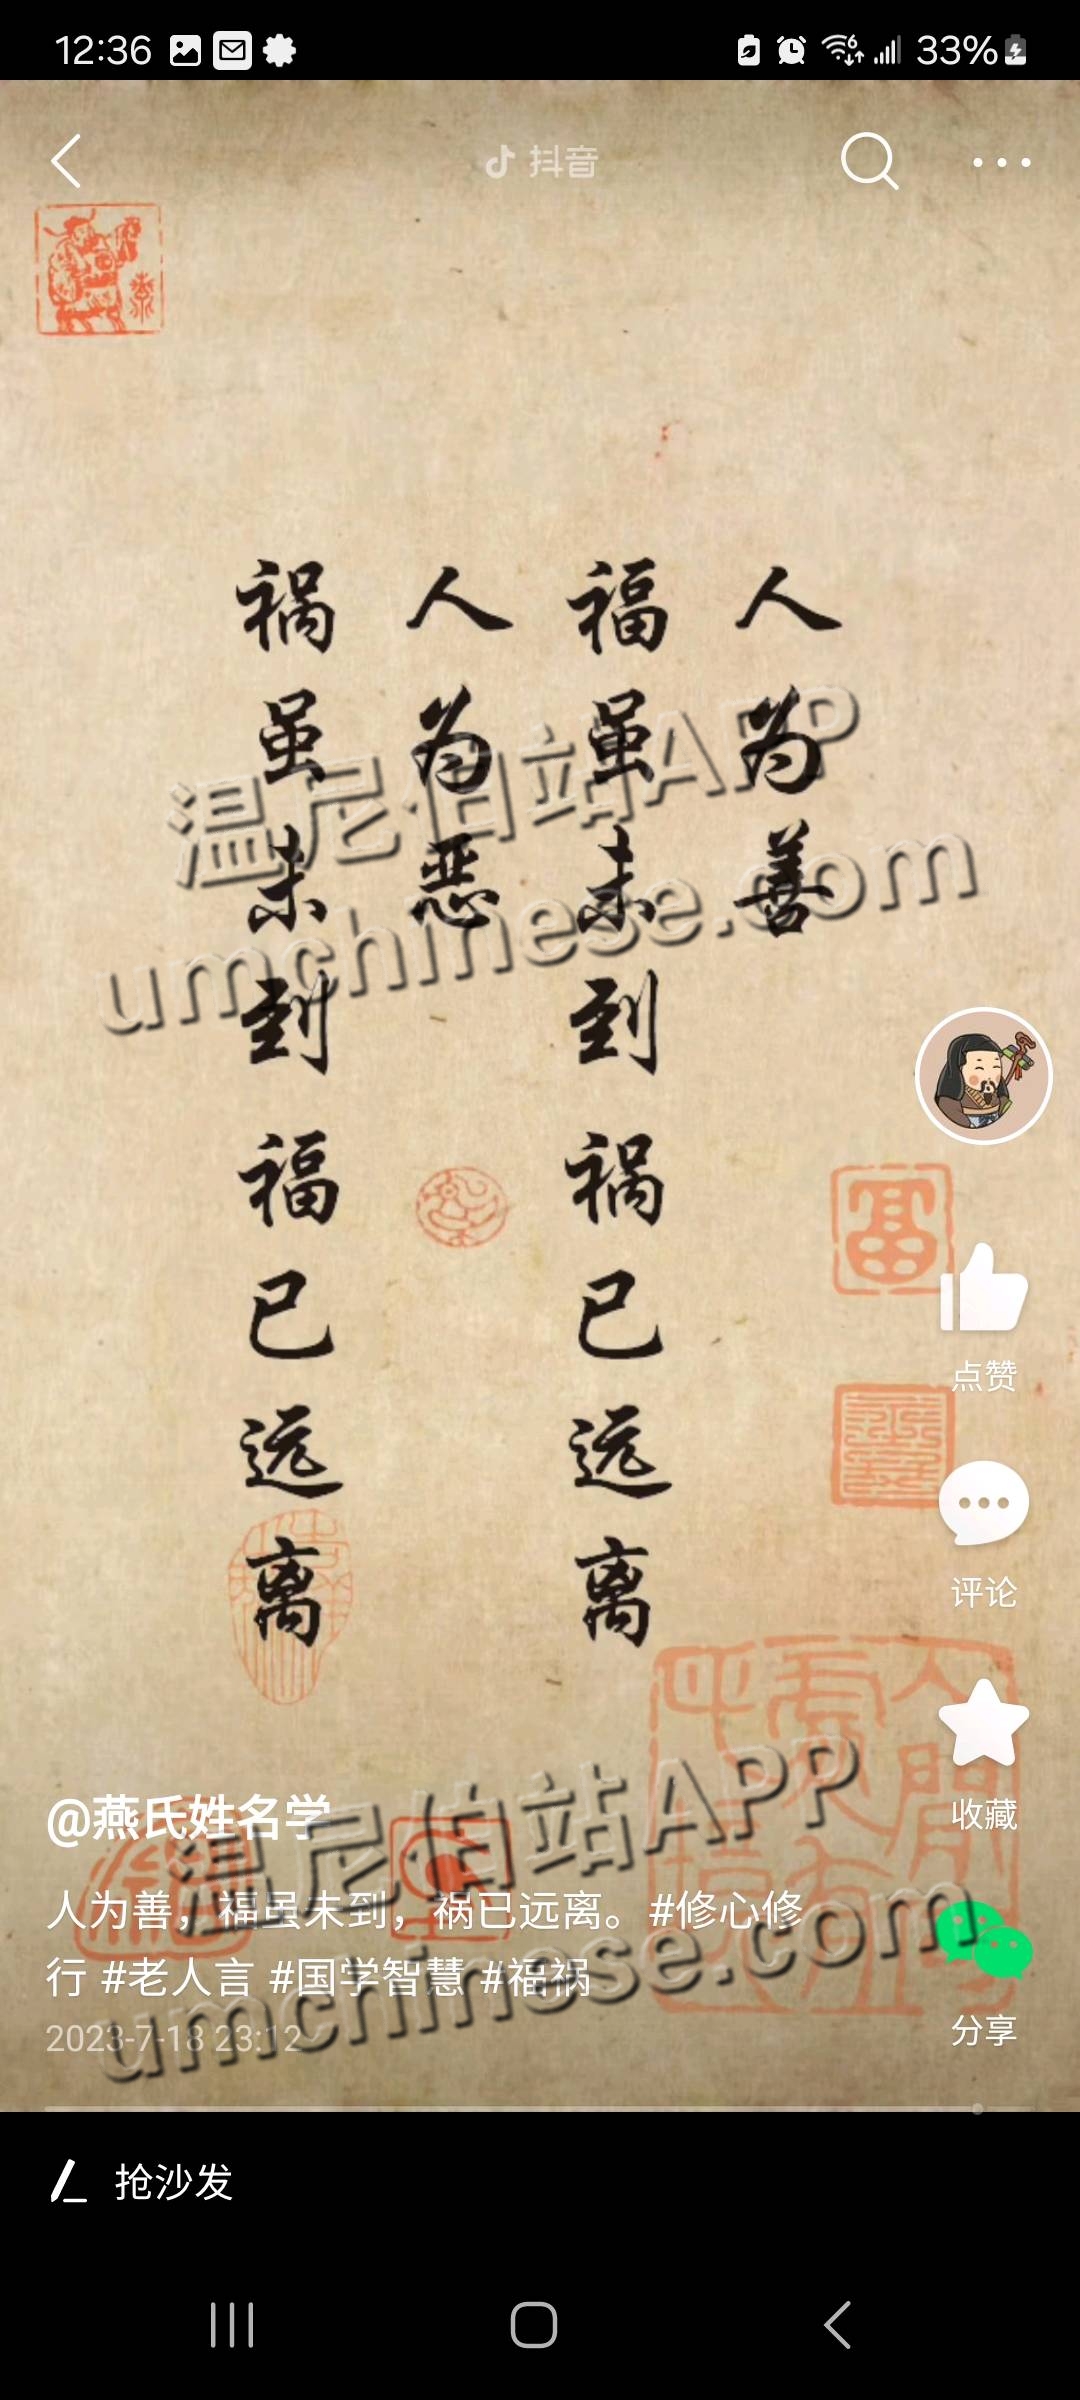 12:36
33%
抖音
人为善
福虽未到 祸已远离
人为恶
祸虽未到 福已远离
温尼伯站APP
umchinese.com
点赞
评论
收藏
@燕氏姓名学
温尼伯站APP
人为善，福虽未到，祸已远离。#修心修
行 #老人言 #国学智慧 #福祸
umchinese.com
2023-7-18 23:12
分享
抢沙发